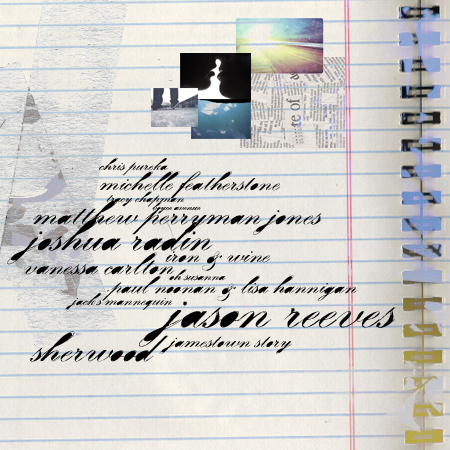 te of
chris pureka
michelle featherstone
tracy chapman
matthew perryman jones
joshua radin
iron & wine
vanessa carlton
oh susanna
paul noonan & lisa hannigan
jack's mannequin
jason reeves
jamestown story
sherwood